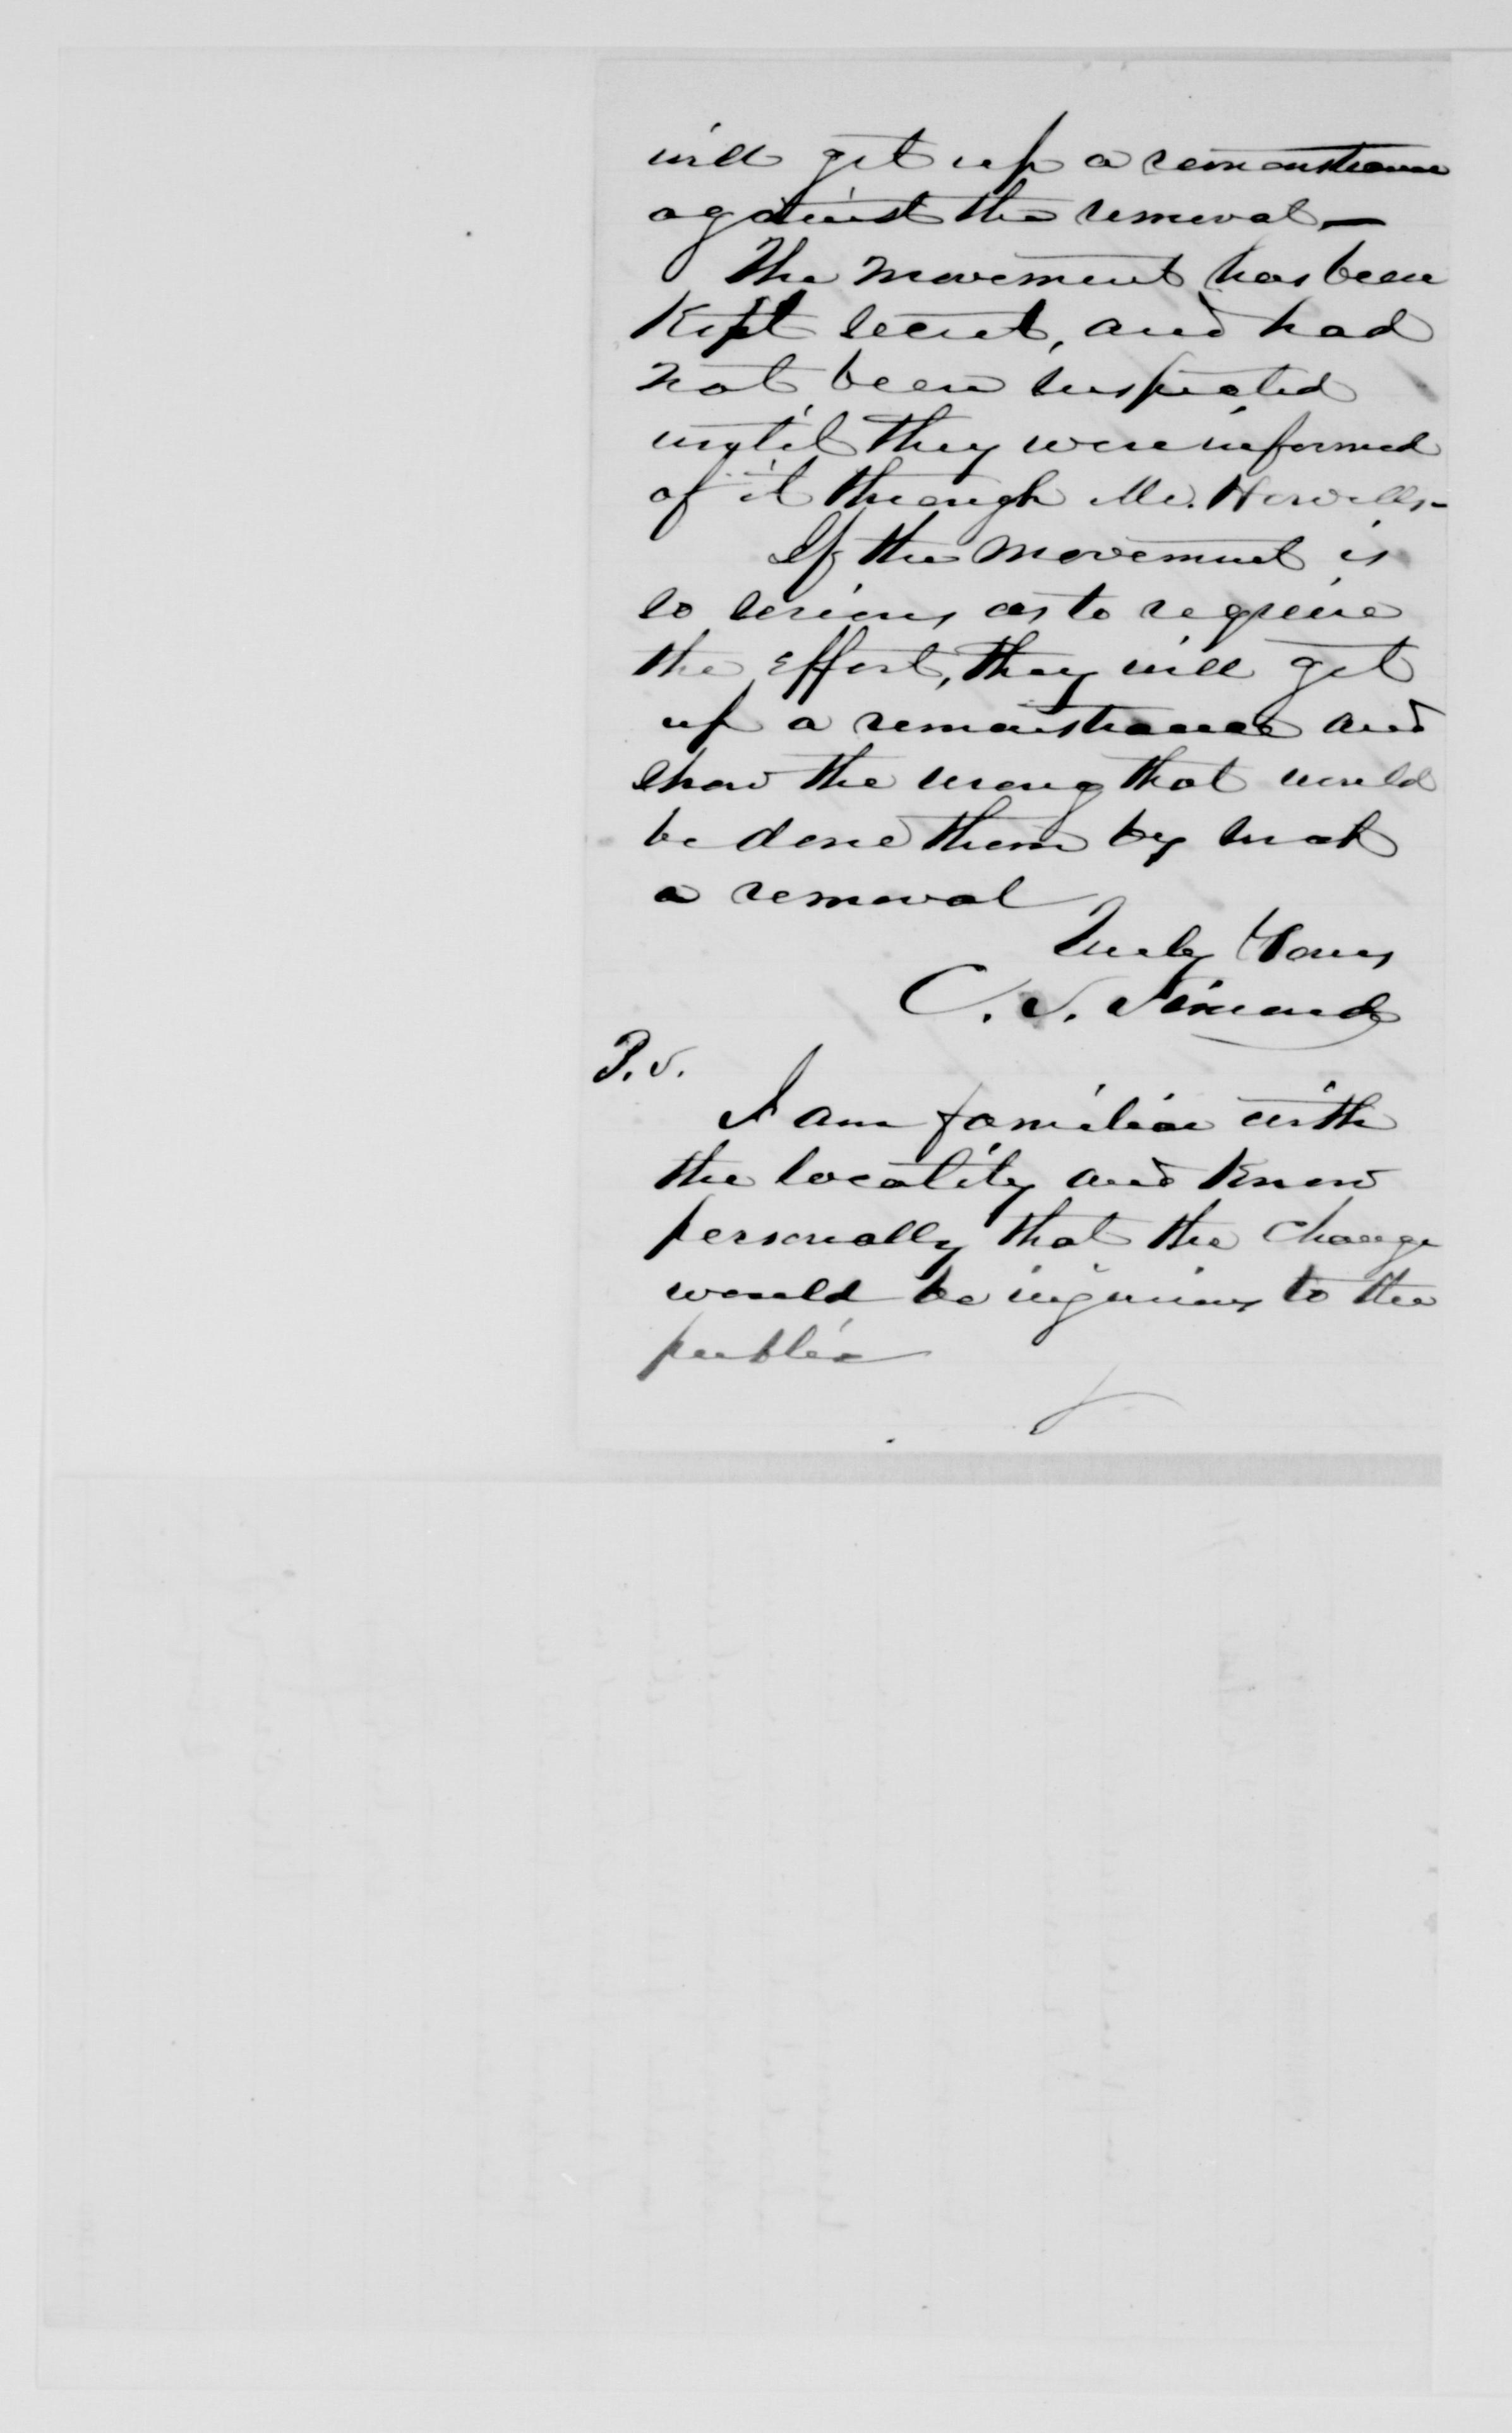 will get up a remonstrance
against the removal —
The movement has been
Kept secret, and had
not been suspected
until they were informed
of it through Mr. Howells -
If the movement is
so serious as to require
the effort, they will get
up a remonstrance and
show the wrong that would
be done them by such
a removal
Truly Yours
C. S. Simonds
P.S.
I am familiar with
the locality and know
personally that the change
would be injurious to the
public